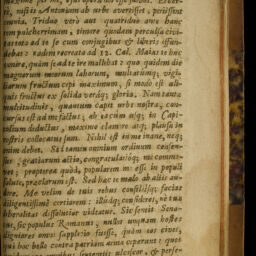 nuit; nuitis Antonium ab urbe evertisset, periissent
omnia. Triduo vero aut quatriduo ante hanc
rem pulcherrimam, timore quodam perculsa civi-
tas tota ad te se cum conjugibus & liberis effun-
debat: eadem recreata ad 12. Cal. Maias te huc
venire, quàm se ad te ire malebat: quo quidem die
magnorum meorum laborum, multarumq; vigi-
liarum fructum cepi maximum, si modo est ali-
quis fructus ex solida veraq; gloria. Nam tantæ
multitudinis, quantam capit urbs nostra, con-
cursus est ad me factus, ab eaque usq; in Capi-
tolium deductus, maximo clamore atq; plausu in
rostris collocatus sum. Nihil est in me inane, neq;
enim debet. Sed tamen omnium ordinum consen-
sus, gratiarum actio, congratulatioq; me commo-
vet; propterea quòd, popularem me esse in populi
salute, præclarum est. Sed hæc te malo ab aliis audi-
re. Me velim de tuis rebus consiliisq; facias
diligentissimè certiorem: illudq; consideres, ne tua
liberalitas dissolutior videatur. Sic sentit Sena-
tus, sic populus Romanus, nullos unquam hostes
digniores omni supplicio fuisse, quàm eos cives,
qui hoc bello contra patriam arma ceperunt: quos
quidem ego omnibus sententiis ulciscor, & perse-